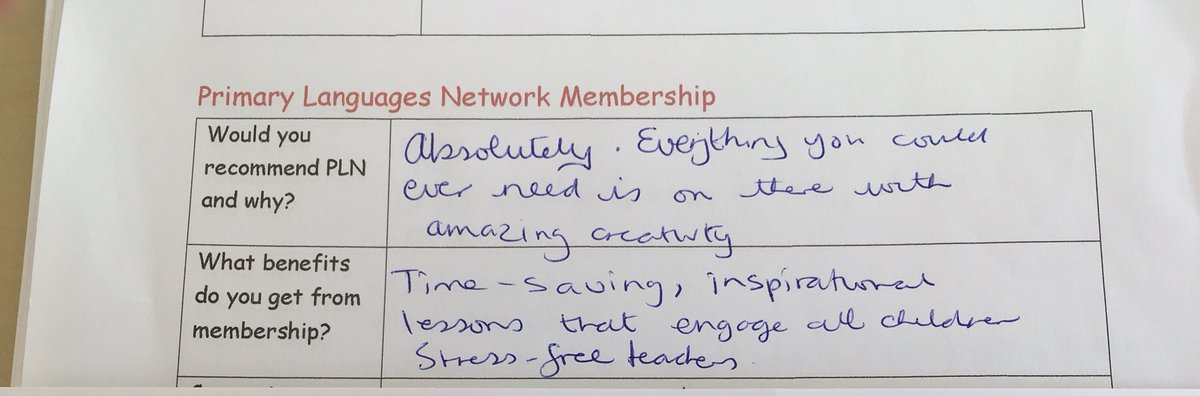 Primary Languages Network Membership
Would you
recommend PLN
and why?
Absolutely. Everything you could
ever need is on there with
amazing creativity
What benefits
do you get from
membership?
Time-saving, inspirational
lessons that engage all children
Stress-free teachers.